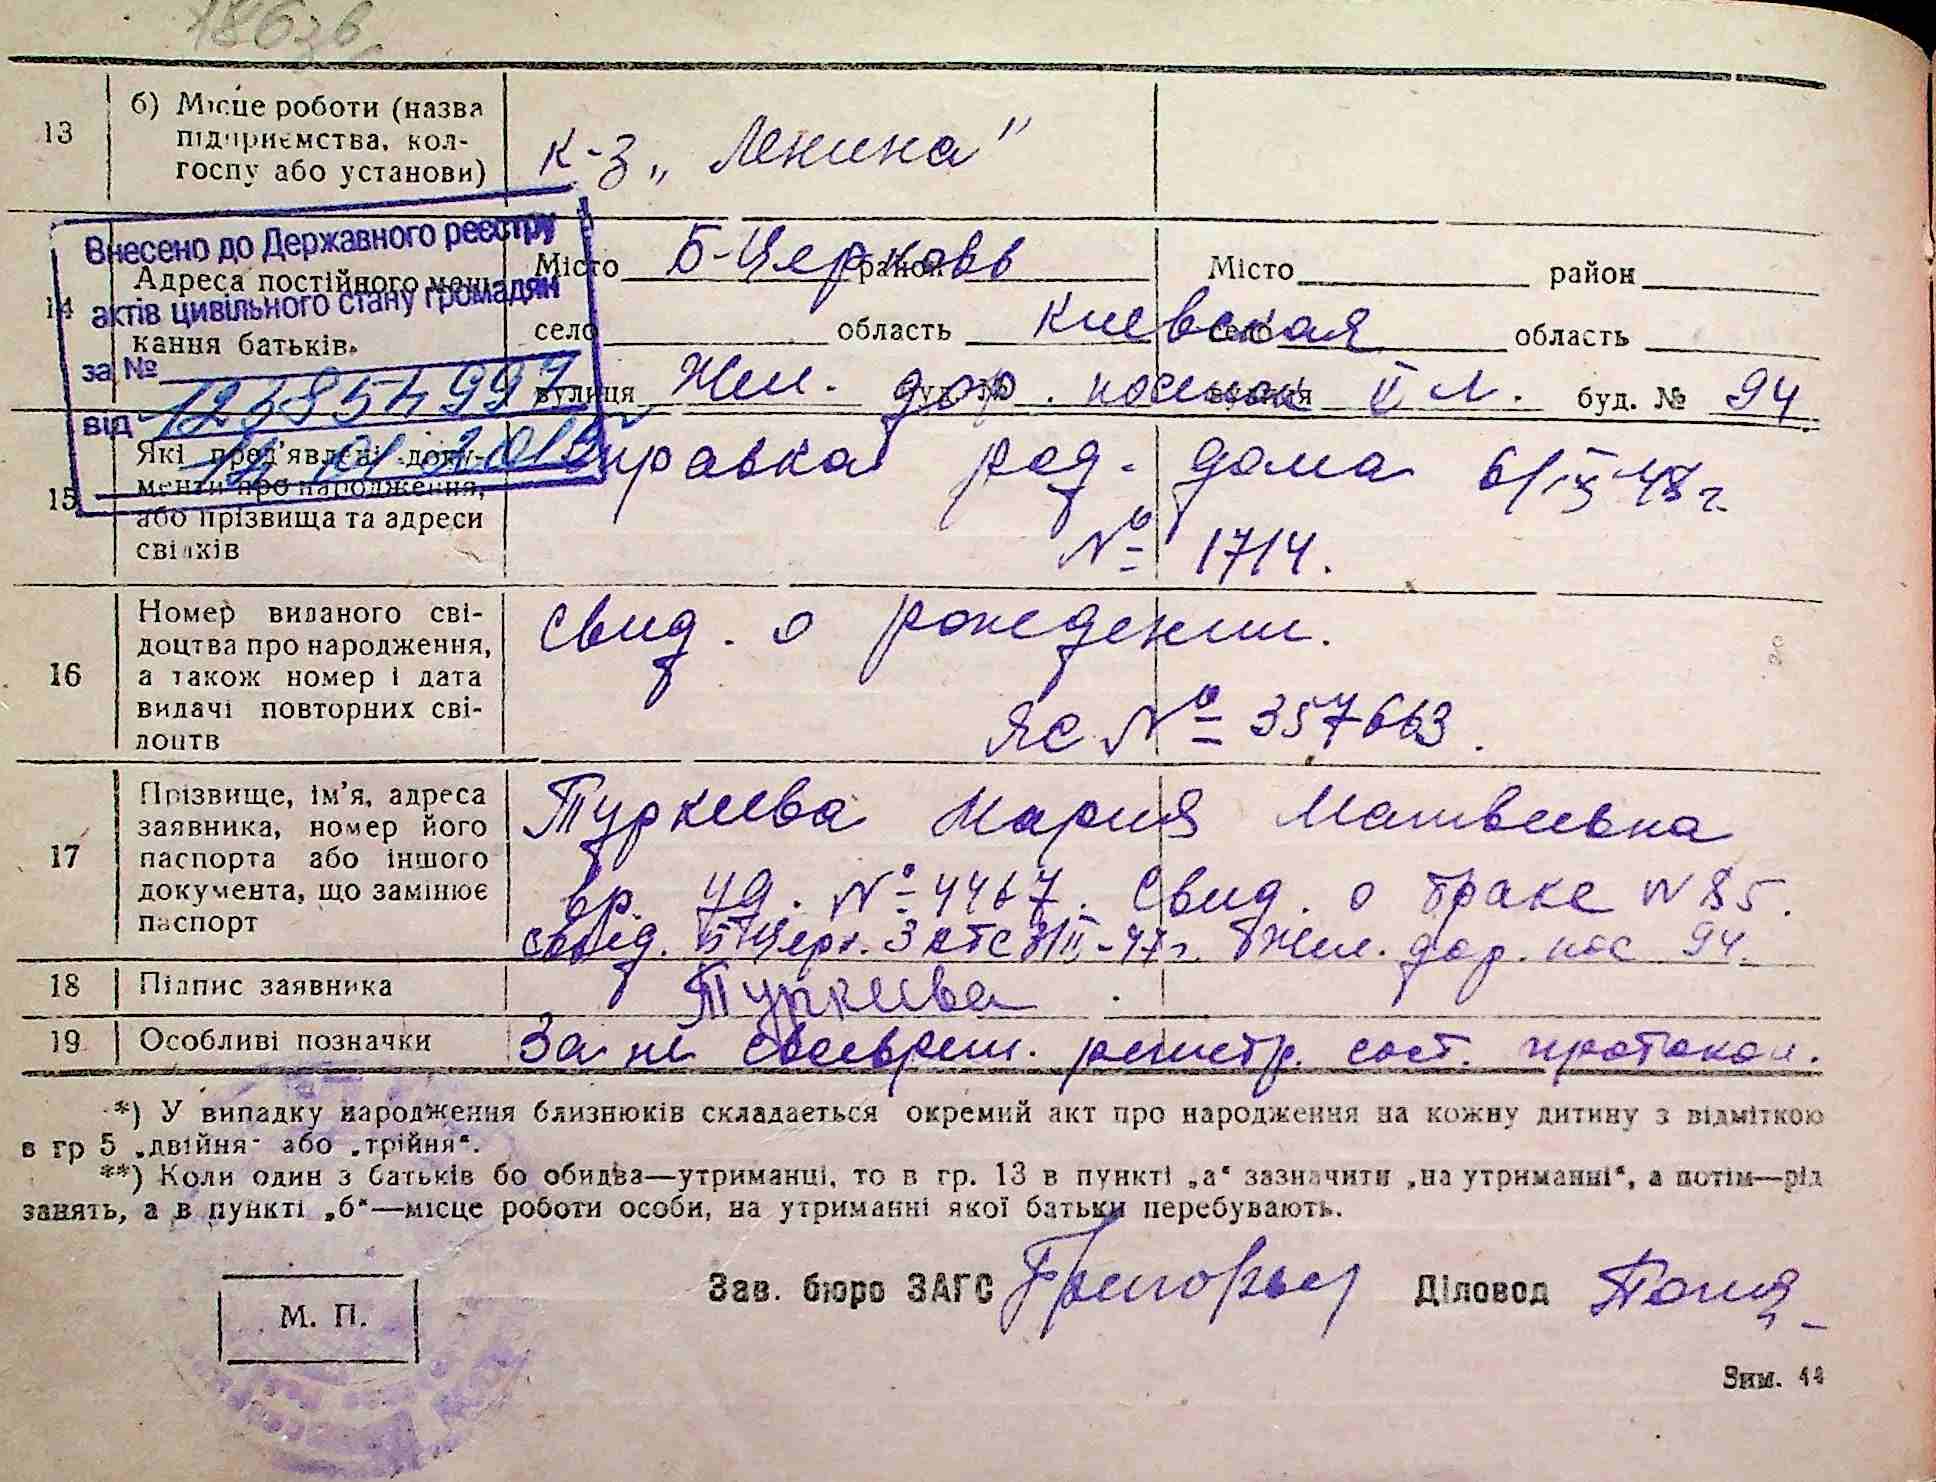 13
б) Місце роботи (назва
підприємства, кол-
госпу або установи)
к-з „Ленина"
Внесено до Державного реєстру
актів цивільного стану громадян
за №
від
14
Адреса постійного меш-
кання батьків.
Місто Б-Церковь район
село область Киевская
вулиця Жел. дор. поселок II л. буд. №
Місто район
село область
вулиця буд. № 94
15
Які пред'явлені доку-
менти про народження,
або прізвища та адреси
свідків
Справка род. дома 6/IX 48 г.
№ 1714.
16
Номер виданого сві-
доцтва про народження,
а також номер і дата
видачі повторних сві-
доцтв
Свид. о рождении.
ЯС № 357663.
17
Прізвище, ім'я, адреса
заявника, номер його
паспорта або іншого
документа, що замінює
паспорт
Туркеева Мария Матвеевна
вр. уд. № 4467. Свид. о браке N 85.
Б Церк. Жел. дор. пос 94.
18
Підпис заявника
Туркеева
19
Особливі позначки
За не своеврем. регистр. сост. протокол.
*) У випадку народження близнюків складається окремий акт про народження на кожну дитину з відміткою
в гр 5 „двійня" або „трійня".
**) Коли один з батьків бо обидва—утриманці, то в гр. 13 в пункті „а" зазначити „на утриманні", а потім—рід
занять, а в пункті „б"—місце роботи особи, на утриманні якої батьки перебувають.
Зав. бюро ЗАГС
Діловод
М. П.
Зим. 44